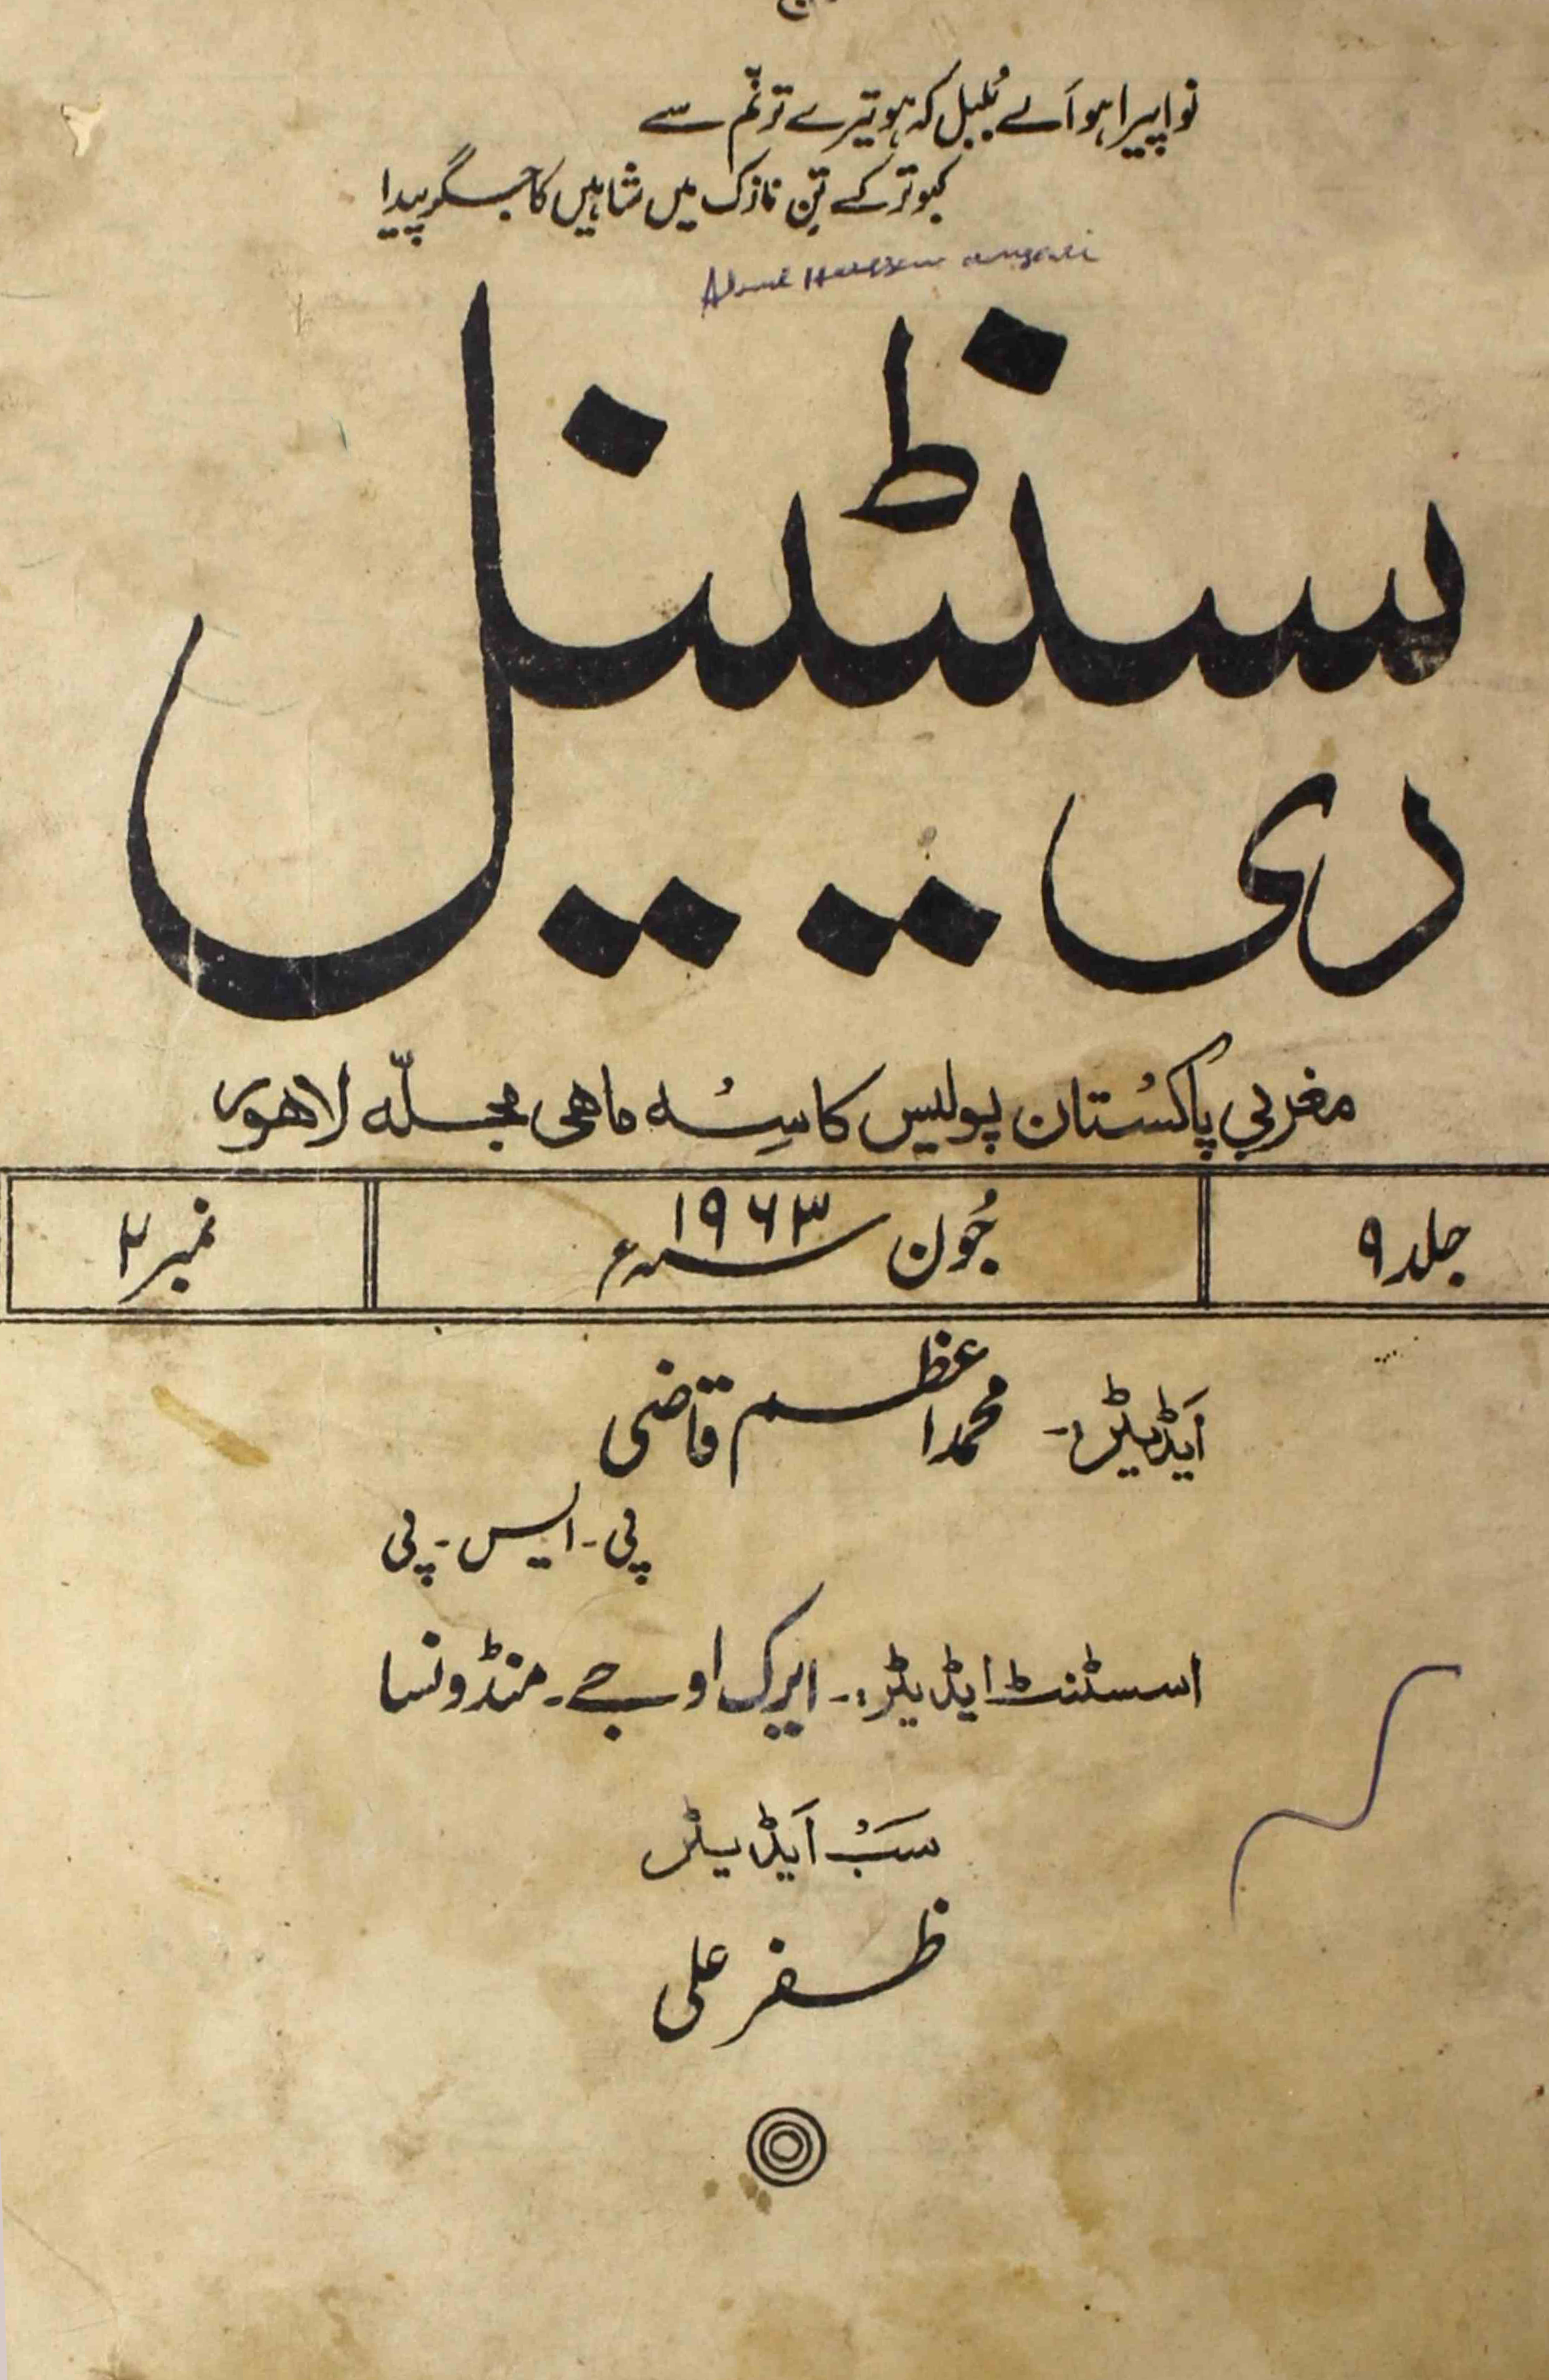 نوا پیرا ہو اَے بُلبل کہ ہو تیرے ترنّم سے
کبوتر کے تنِ نازک میں شاہیں کا جگر پیدا
سنٹینل
دی
مغربی پاکستان پولیس کا سِہ ماہی مجلّہ لاہور
جلد ۹
جُون ۱۹۶۳ء
نمبر ۲
اَیڈیٹر:- محمد اعظم قاضی
پی-ایس-پی
اسسٹنٹ ایڈیٹر:- ایرک او جے- منڈونسا
سَبْ اَیڈیٹر
ظفر علی